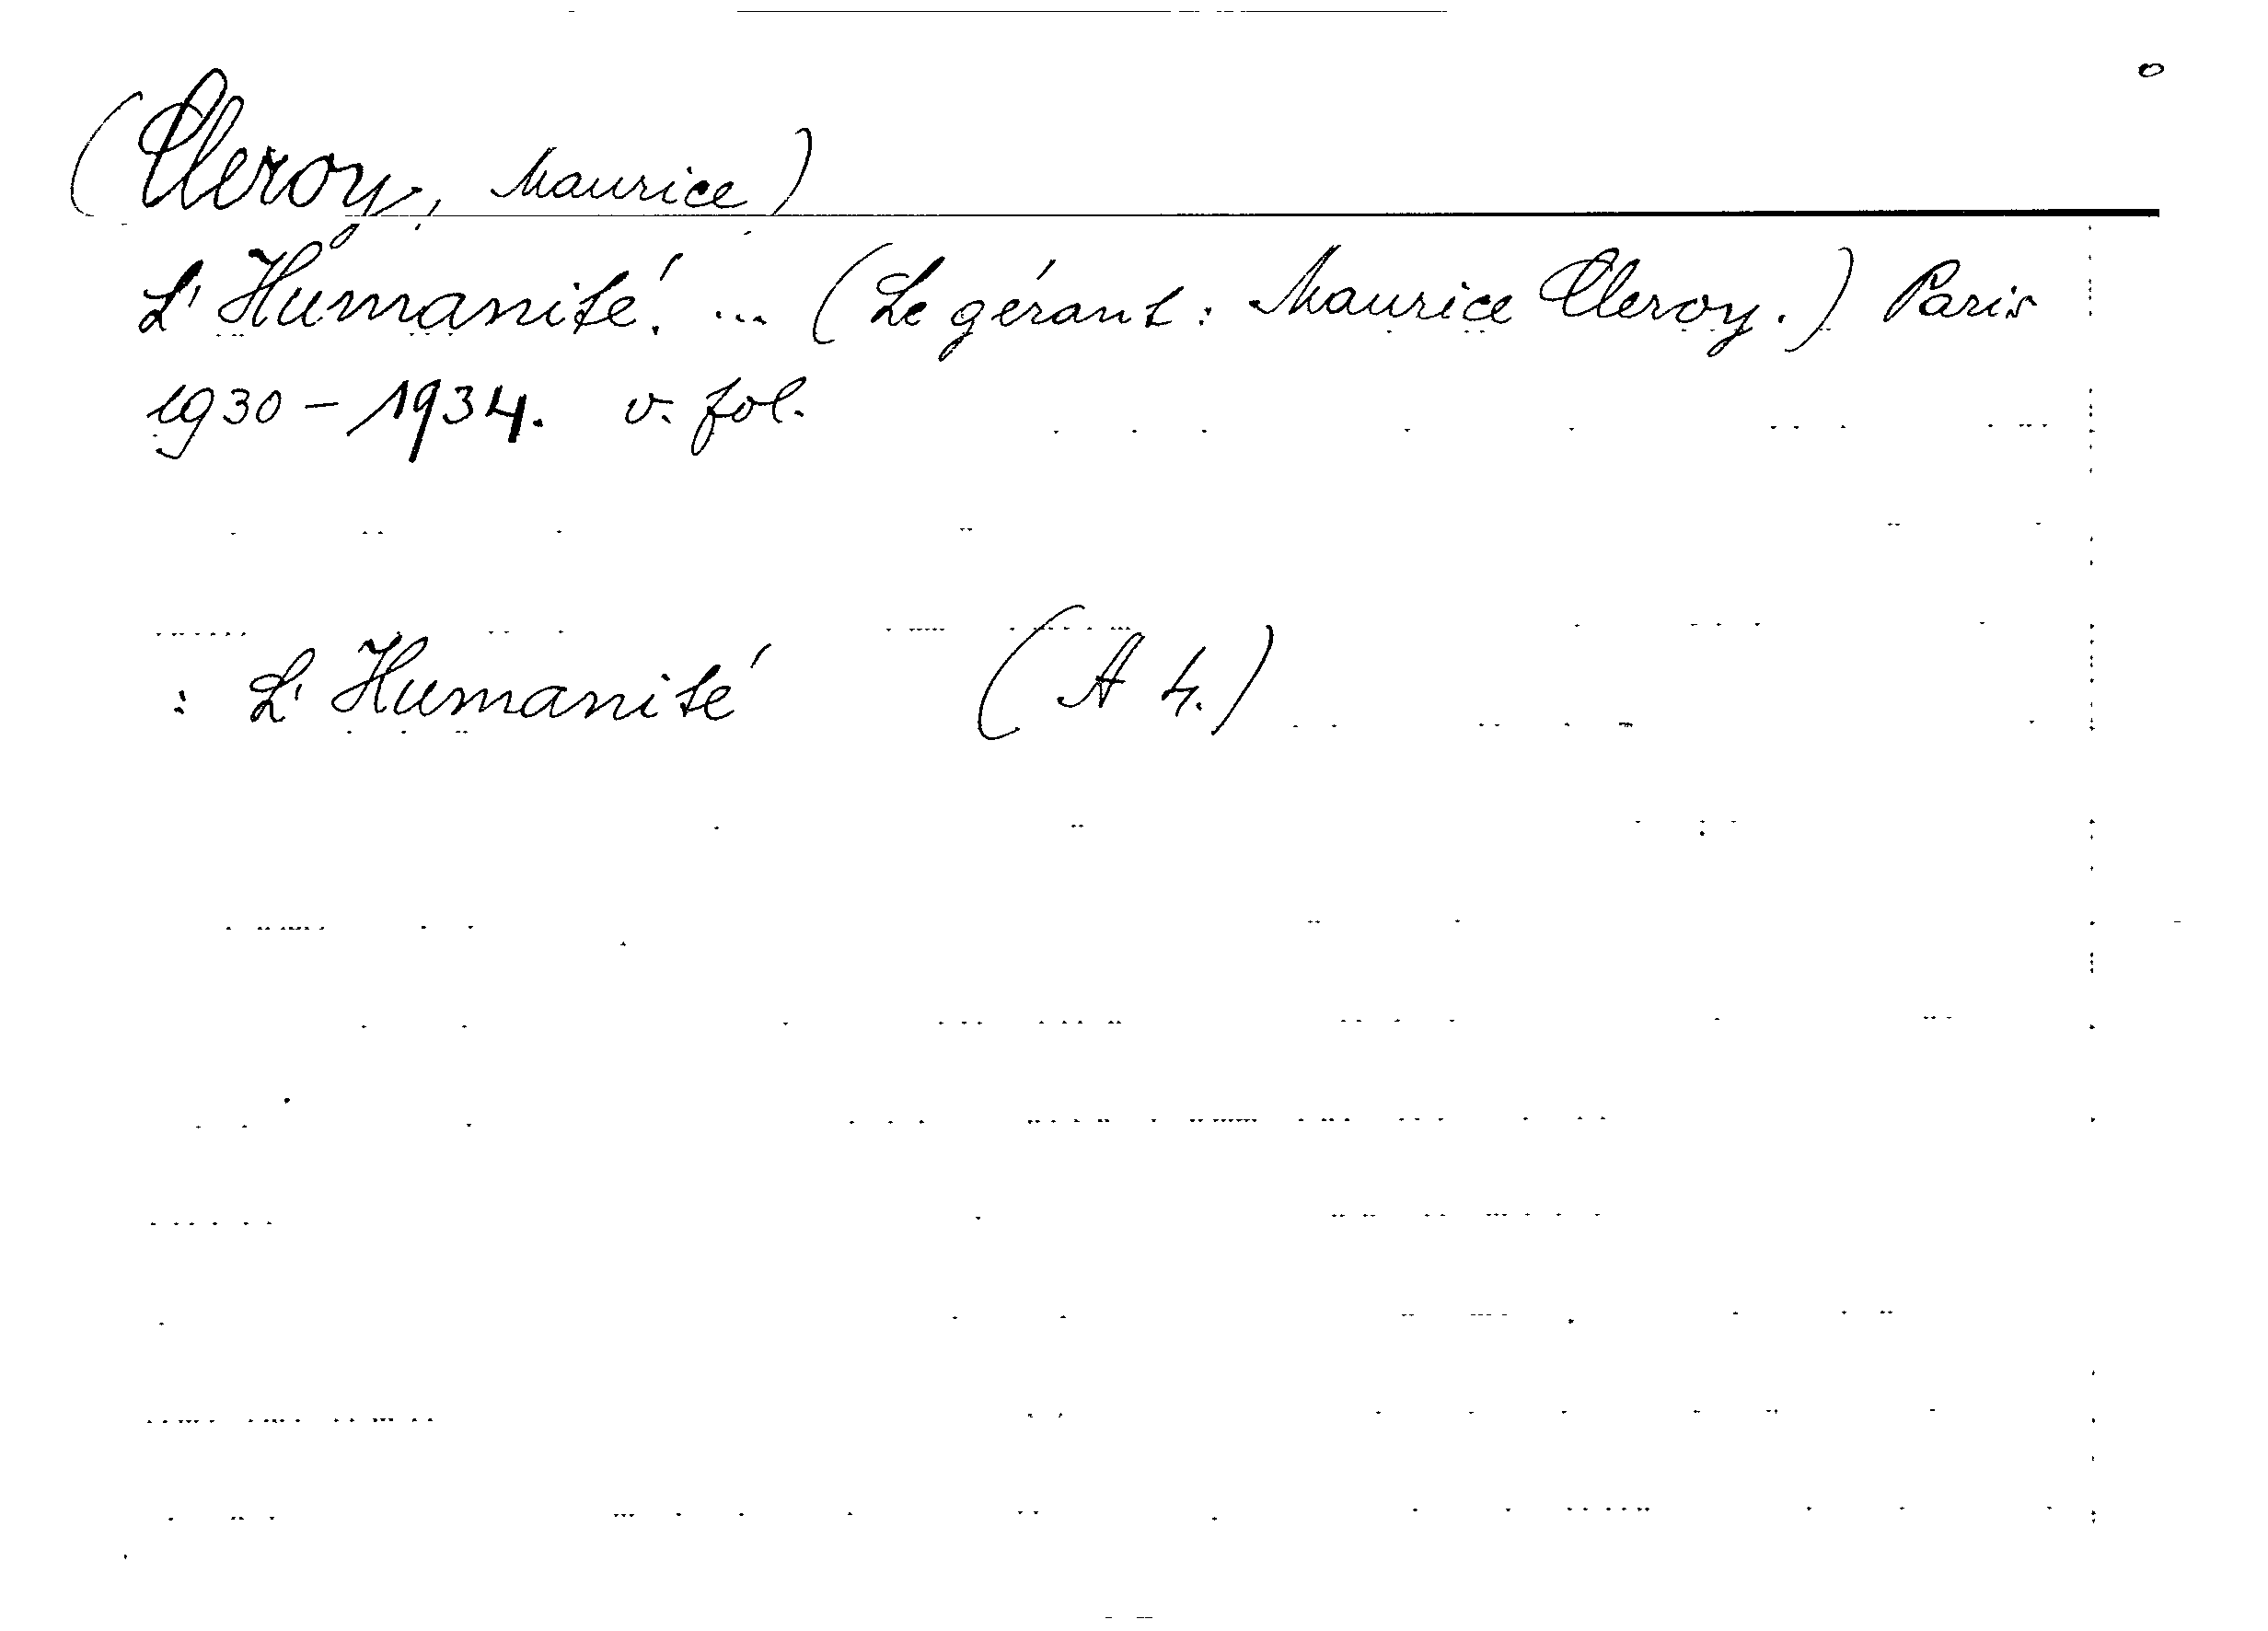 (Cleroy, Maurice)
L'Humanité. ... (Le gérant: Maurice Cleroy.) Paris
1930-1934. v. fol.
: L'Humanité (A 4.)